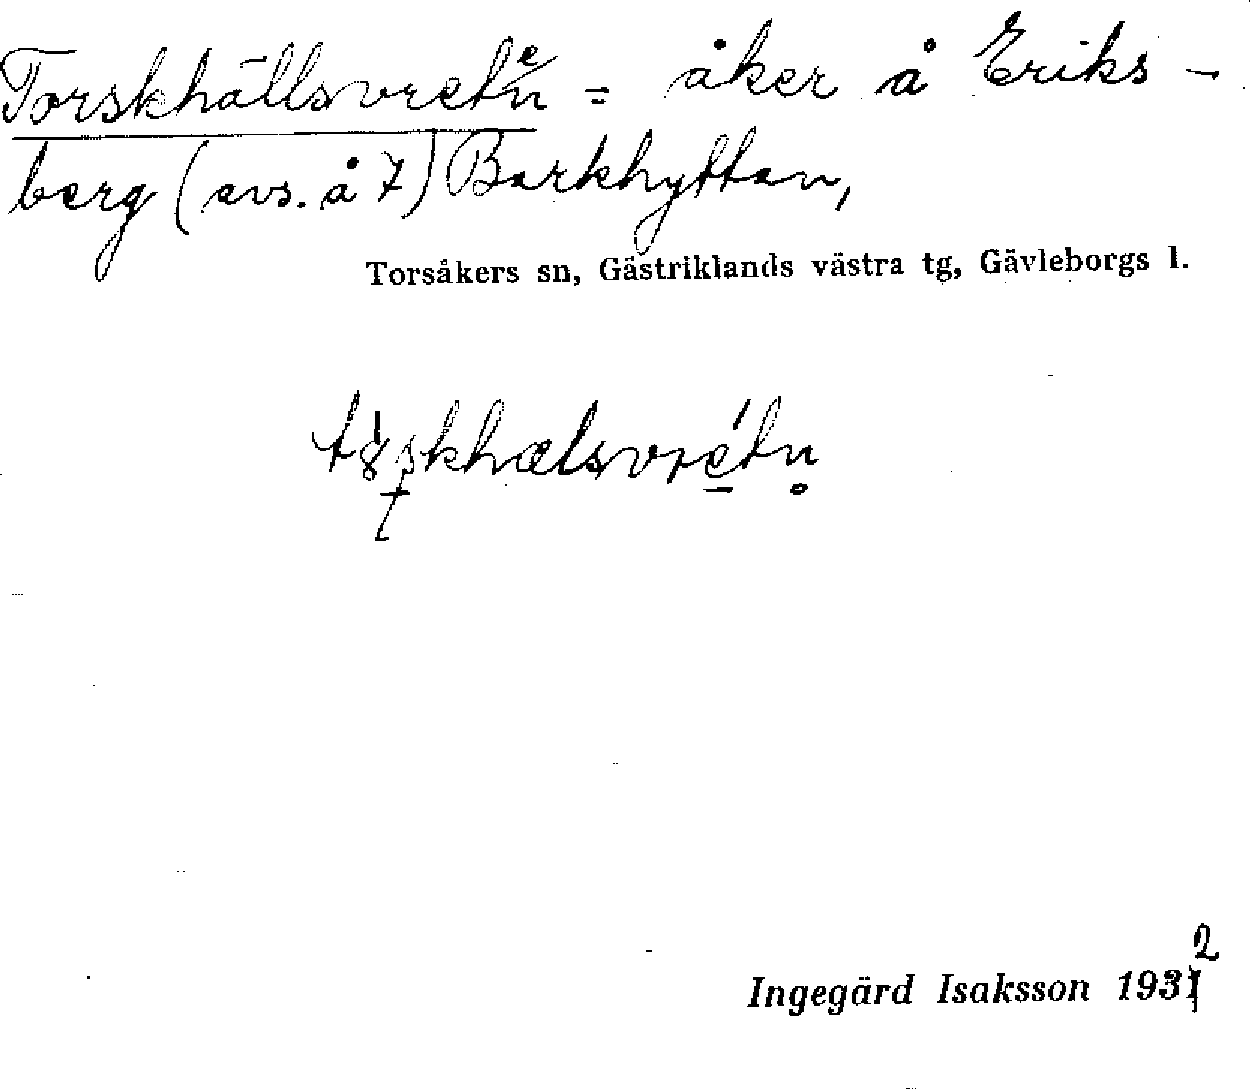 Torskhällsvreten = åker å Eriks-
berg (avs. å 7) Barkhyttan,
Torsåkers sn, Gästriklands västra tg, Gävleborgs l.
Ingegärd Isaksson 1932